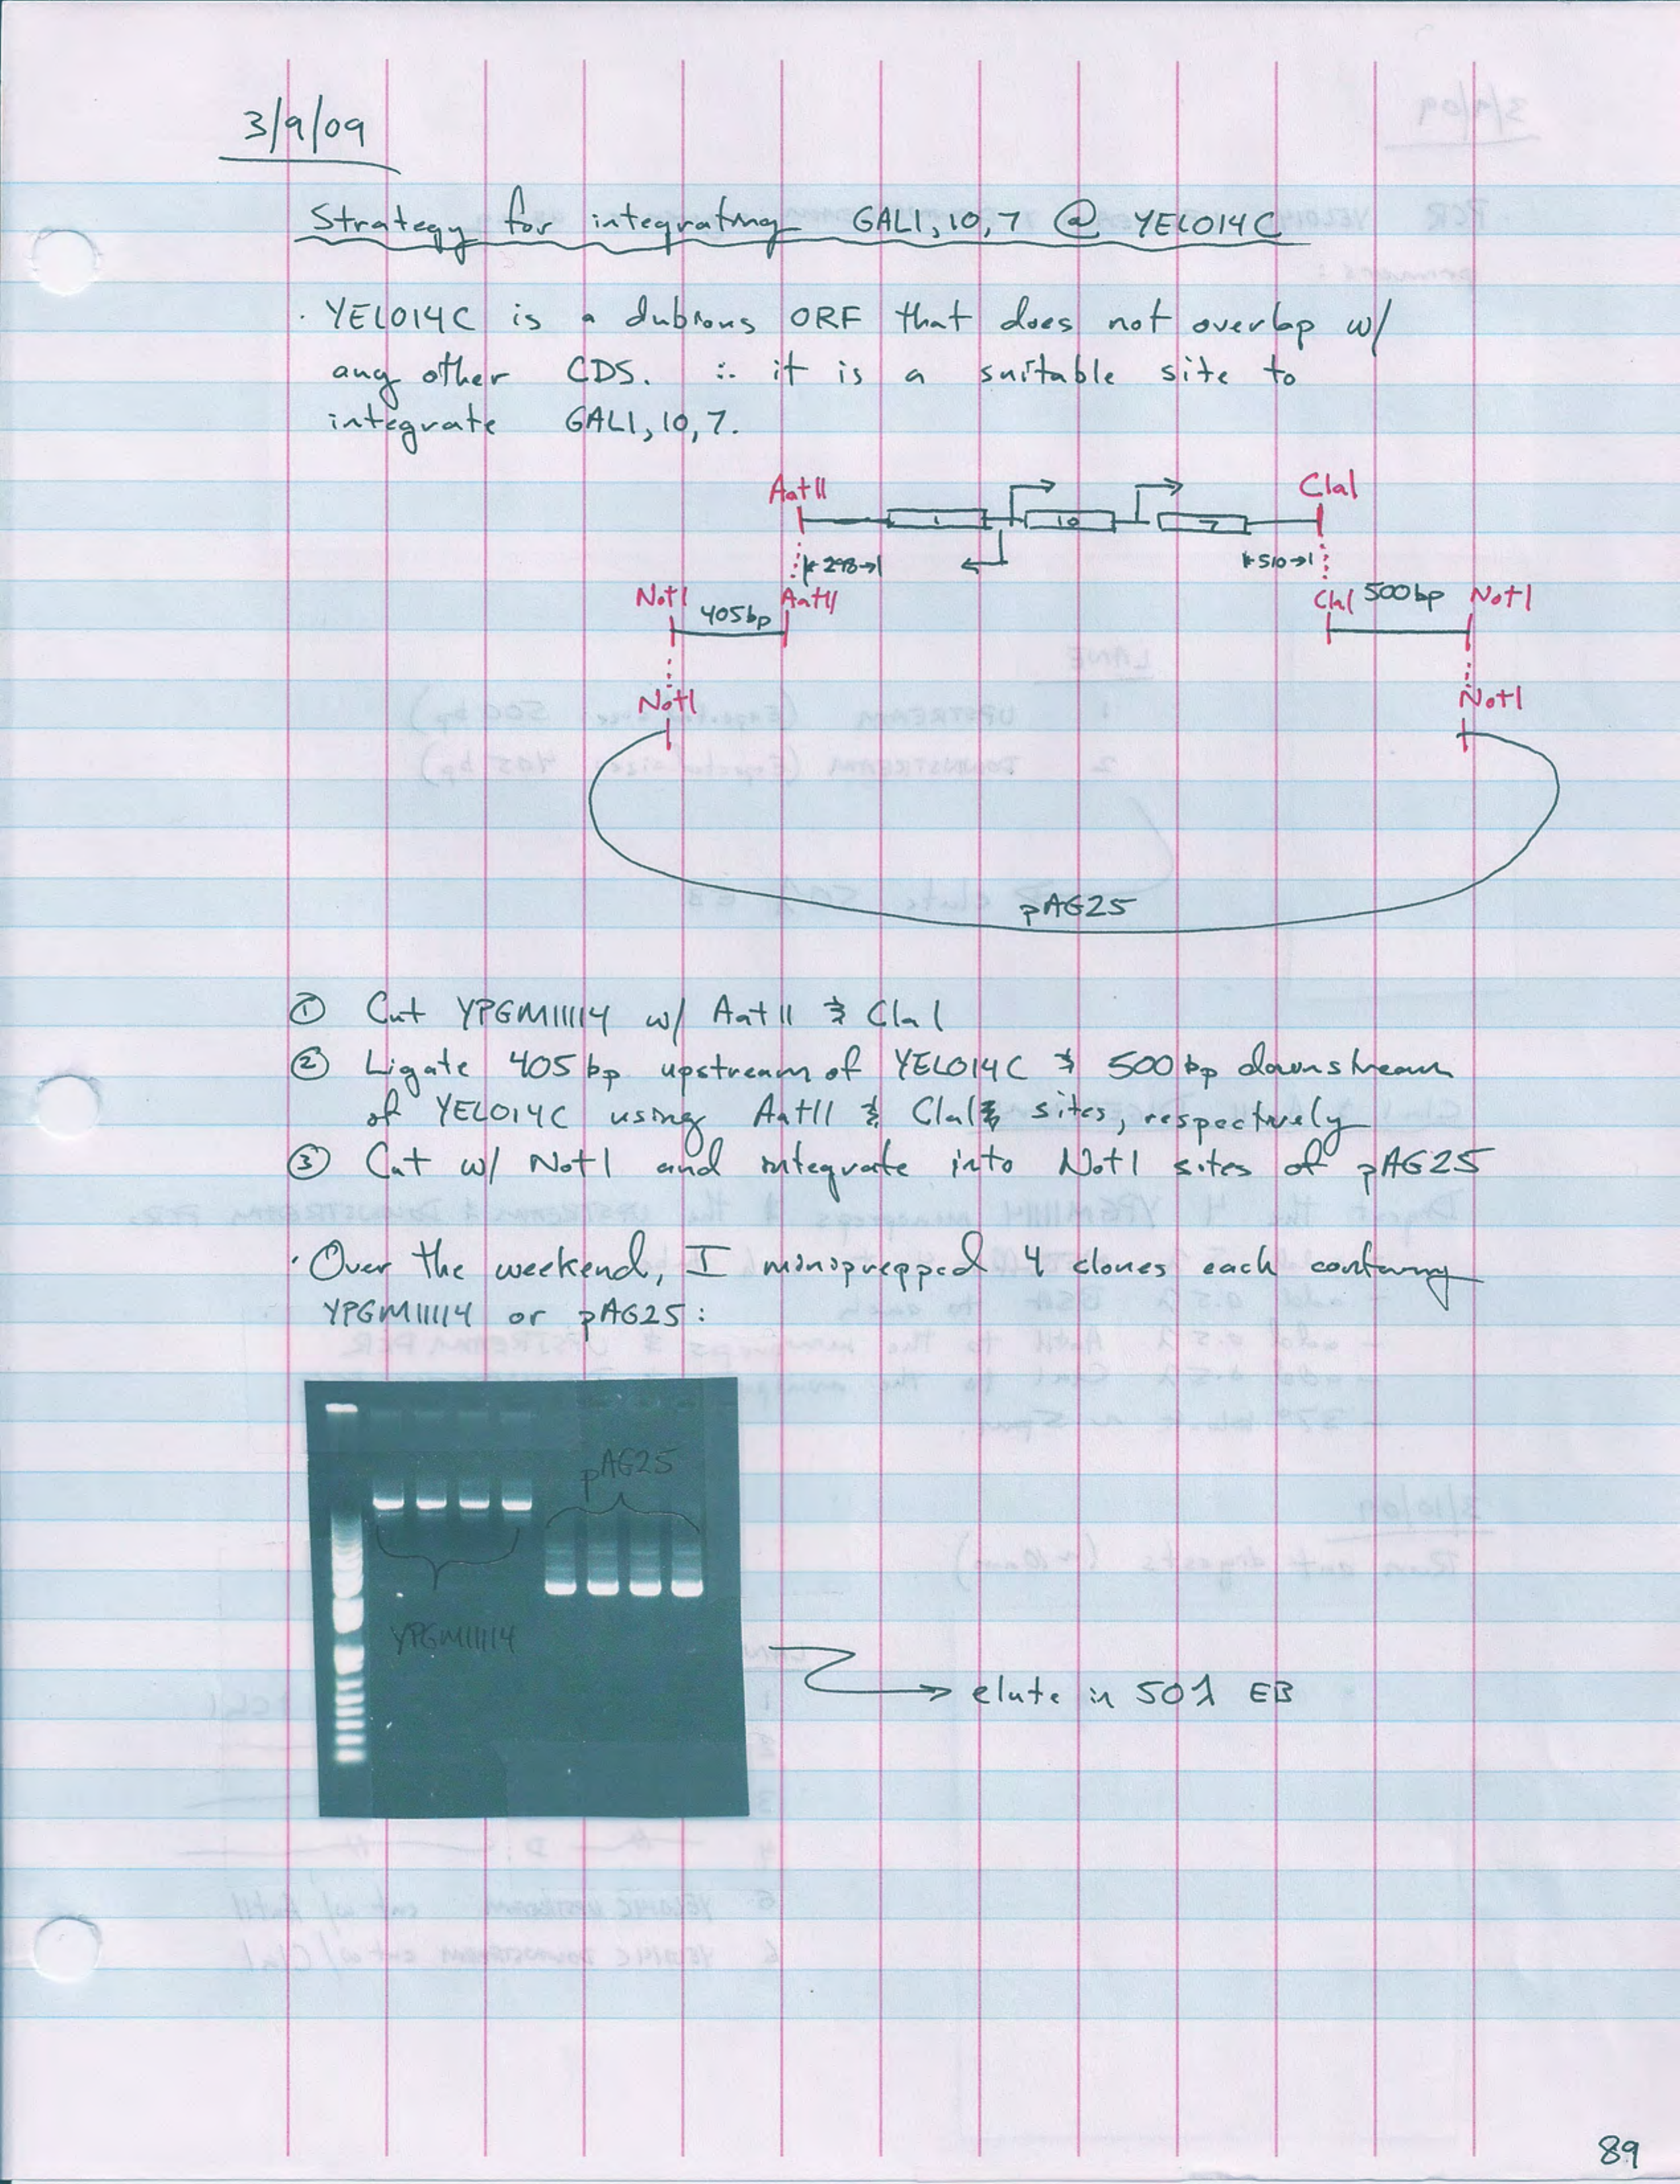 3/9/09
Strategy for integrating GAL1,10,7 @ YEL014C
· YEL014C is a dubious ORF that does not overlap w/
any other CDS. ∴ it is a suitable site to
integrate GAL1,10,7.
AatII ClaI
1 10 7
298 510
NotI 405bp AatII ClaI 500bp NotI
NotI NotI
pAG25
① Cut YPGM11114 w/ AatII & ClaI
② Ligate 405bp upstream of YEL014C & 500bp downstream
of YEL014C using AatII & ClaI sites, respectively
③ Cut w/ NotI and integrate into NotI sites of pAG25
· Over the weekend, I miniprepped 4 clones each containing
YPGM11114 or pAG25:
pAG25
YPGM11114
elute in 50λ EB
89